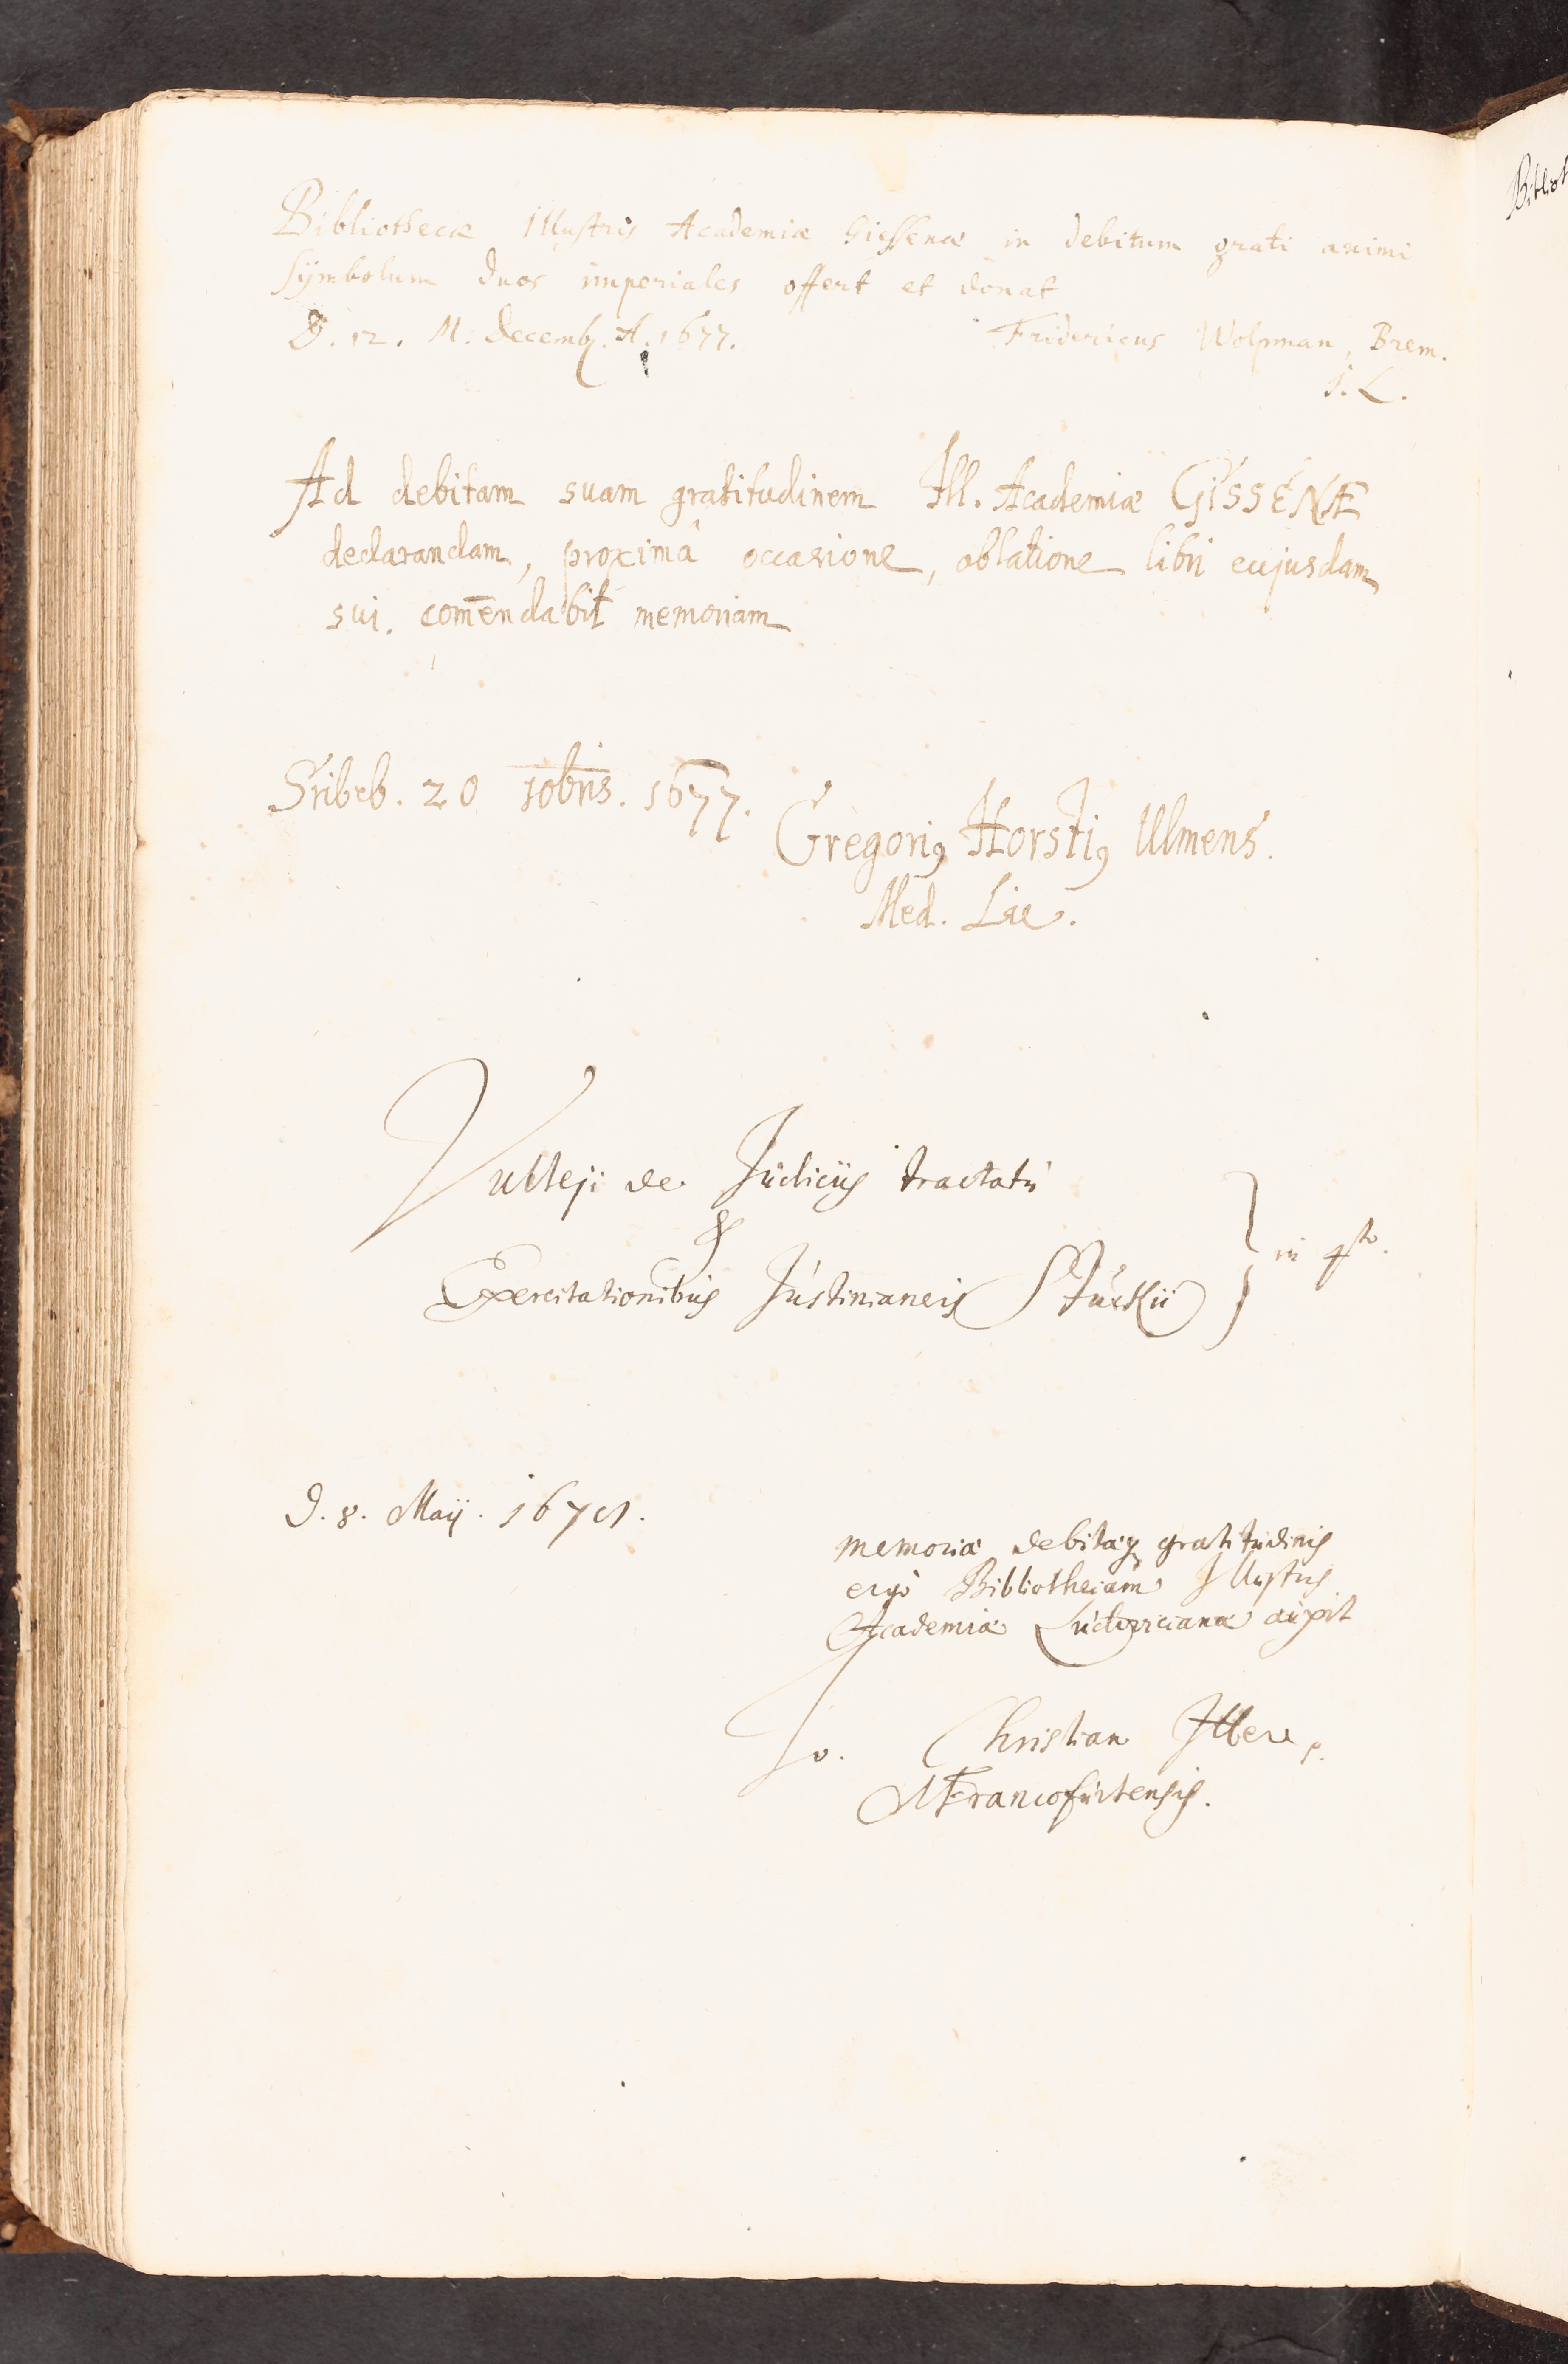 Bibliothecæ Illustris Academiæ Giessenæ in debitum grati animi
Symbolum duos imperiales offert et donat
D. 12. M. Decemb. A. 1677.
Fridericus Wolpman, Brem.
J. L.
Ad debitam suam gratitudinem Ill. Academiæ GISSENÆ
declarandam, proximâ occasione, oblatione libri cujusdam
sui. com̄endabit memoriam
Sribeb. 20 10bris. 1677.
Gregoriꝰ Horstiꝰ Ulmens.
Med. Lic.
Vulteji de Judiciis tractatu
&
Exercitationibus Justinianeis Sturkii
in 4to.
D. 8. Maij.
memoriæ debitæq gratitudinis
ergò Bibliothecam Illustris
Academiæ Ludovicianæ auxit
Jo. Christian Itter
MFrancofurtensis.
Bibliot